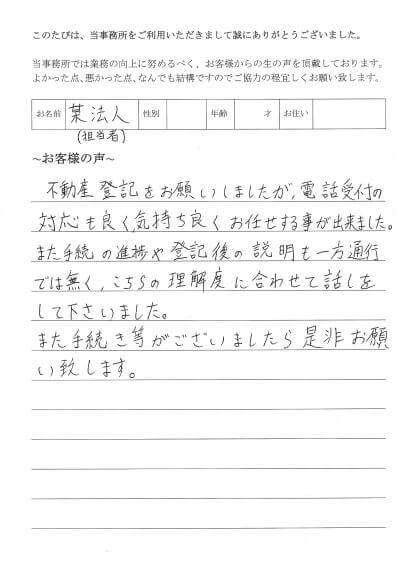 このたびは、当事務所をご利用いただきまして誠にありがとうございました。
当事務所では業務の向上に努めるべく、お客様からの生の声を頂戴しております。
よかった点、悪かった点、なんでも結構ですのでご協力の程宜しくお願い致します。
お名前 某法人 性別 年齢 才 お住い
(担当者)
~お客様の声~
不動産登記をお願いしましたが、電話受付の
対応も良く気持ち良くお任せする事が出来ました。
また手続の進捗や登記後の説明も一方通行
では無く、こちらの理解度に合わせて話しを
して下さいました。
また手続き等がございましたら是非お願
い致します。